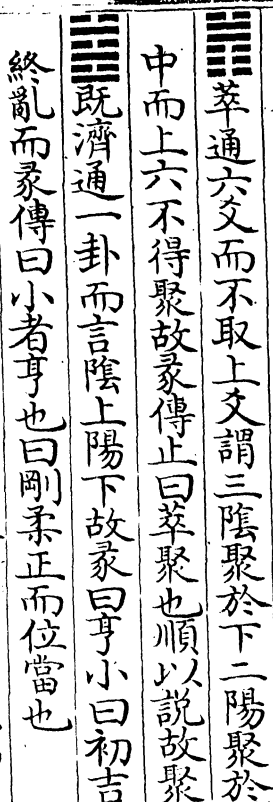 ䷬萃通六爻而不取上爻謂三陰聚於下二陽聚於
中而上六不得聚故彖傳止曰萃聚也順以說故聚
䷾既濟通一卦而言陰上陽下故彖曰亨小曰初吉
終亂而彖傳曰小者亨也曰剛柔正而位當也